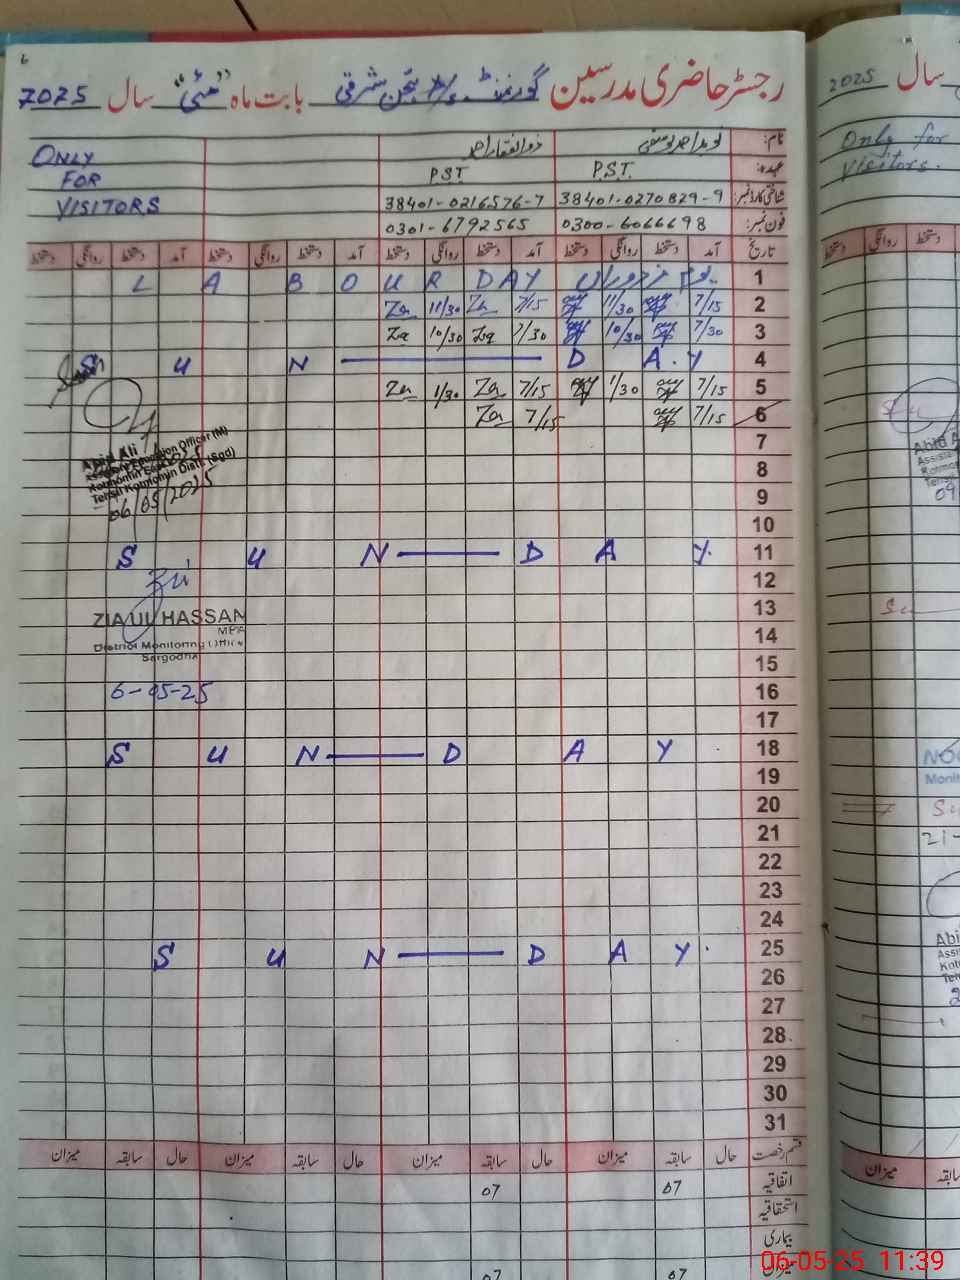 6
رجسٹر حاضری مدرسین گورنمنٹ بچن شرقی بابت ماہ "مئی" سال 2025
نام: نوید احمد یوسفی ذوالفقار احمد ONLY
عہدہ: P.S.T. P.S.T. FOR
شناختی کارڈ نمبر: 38401-0270829-9 38401-0216576-7 VISITORS
فون نمبر: 0300-6066698 0301-6792565
تاریخ آمد دستخط روانگی دستخط آمد دستخط روانگی دستخط آمد دستخط روانگی دستخط آمد دستخط روانگی دستخط
1 یوم مزدوراں LABOUR DAY
2 7/15 11/30 7/15 Za 11/30 Za
3 7/30 10/30 7/30 Za 10/30 Za
4 SUN — DAY
5 7/15 1/30 7/15 Za 1/30 Za
6 7/15 7/15 Za
7
Abid Ali
8
Assistant Education Officer (M)
9
Tehsil Kotmomin Distt. (Sgd)
06/05/2025
10
11 SUN — DAY
12
13
ZIA UL HASSAN
14
District Monitoring Office
Sargodha
15
16 6-05-25
17
18 SUN — DAY
19
20
21
22
23
24
25 SUN — DAY.
26
27
28
29
30
31
قسم رخصت حال سابقہ میزان حال سابقہ میزان حال سابقہ میزان حال سابقہ میزان
اتفاقیہ 07 07
استحقاقیہ
بیماری
میزان 07 07
سال 2025
Only for
Visitors.
دستخط روانگی دستخط
Abid
Assiste
09
Su
NO
Monit
21-
Abi
Assis
Kotm
Teh
2
میزان سابقہ
06-05-25 11:39